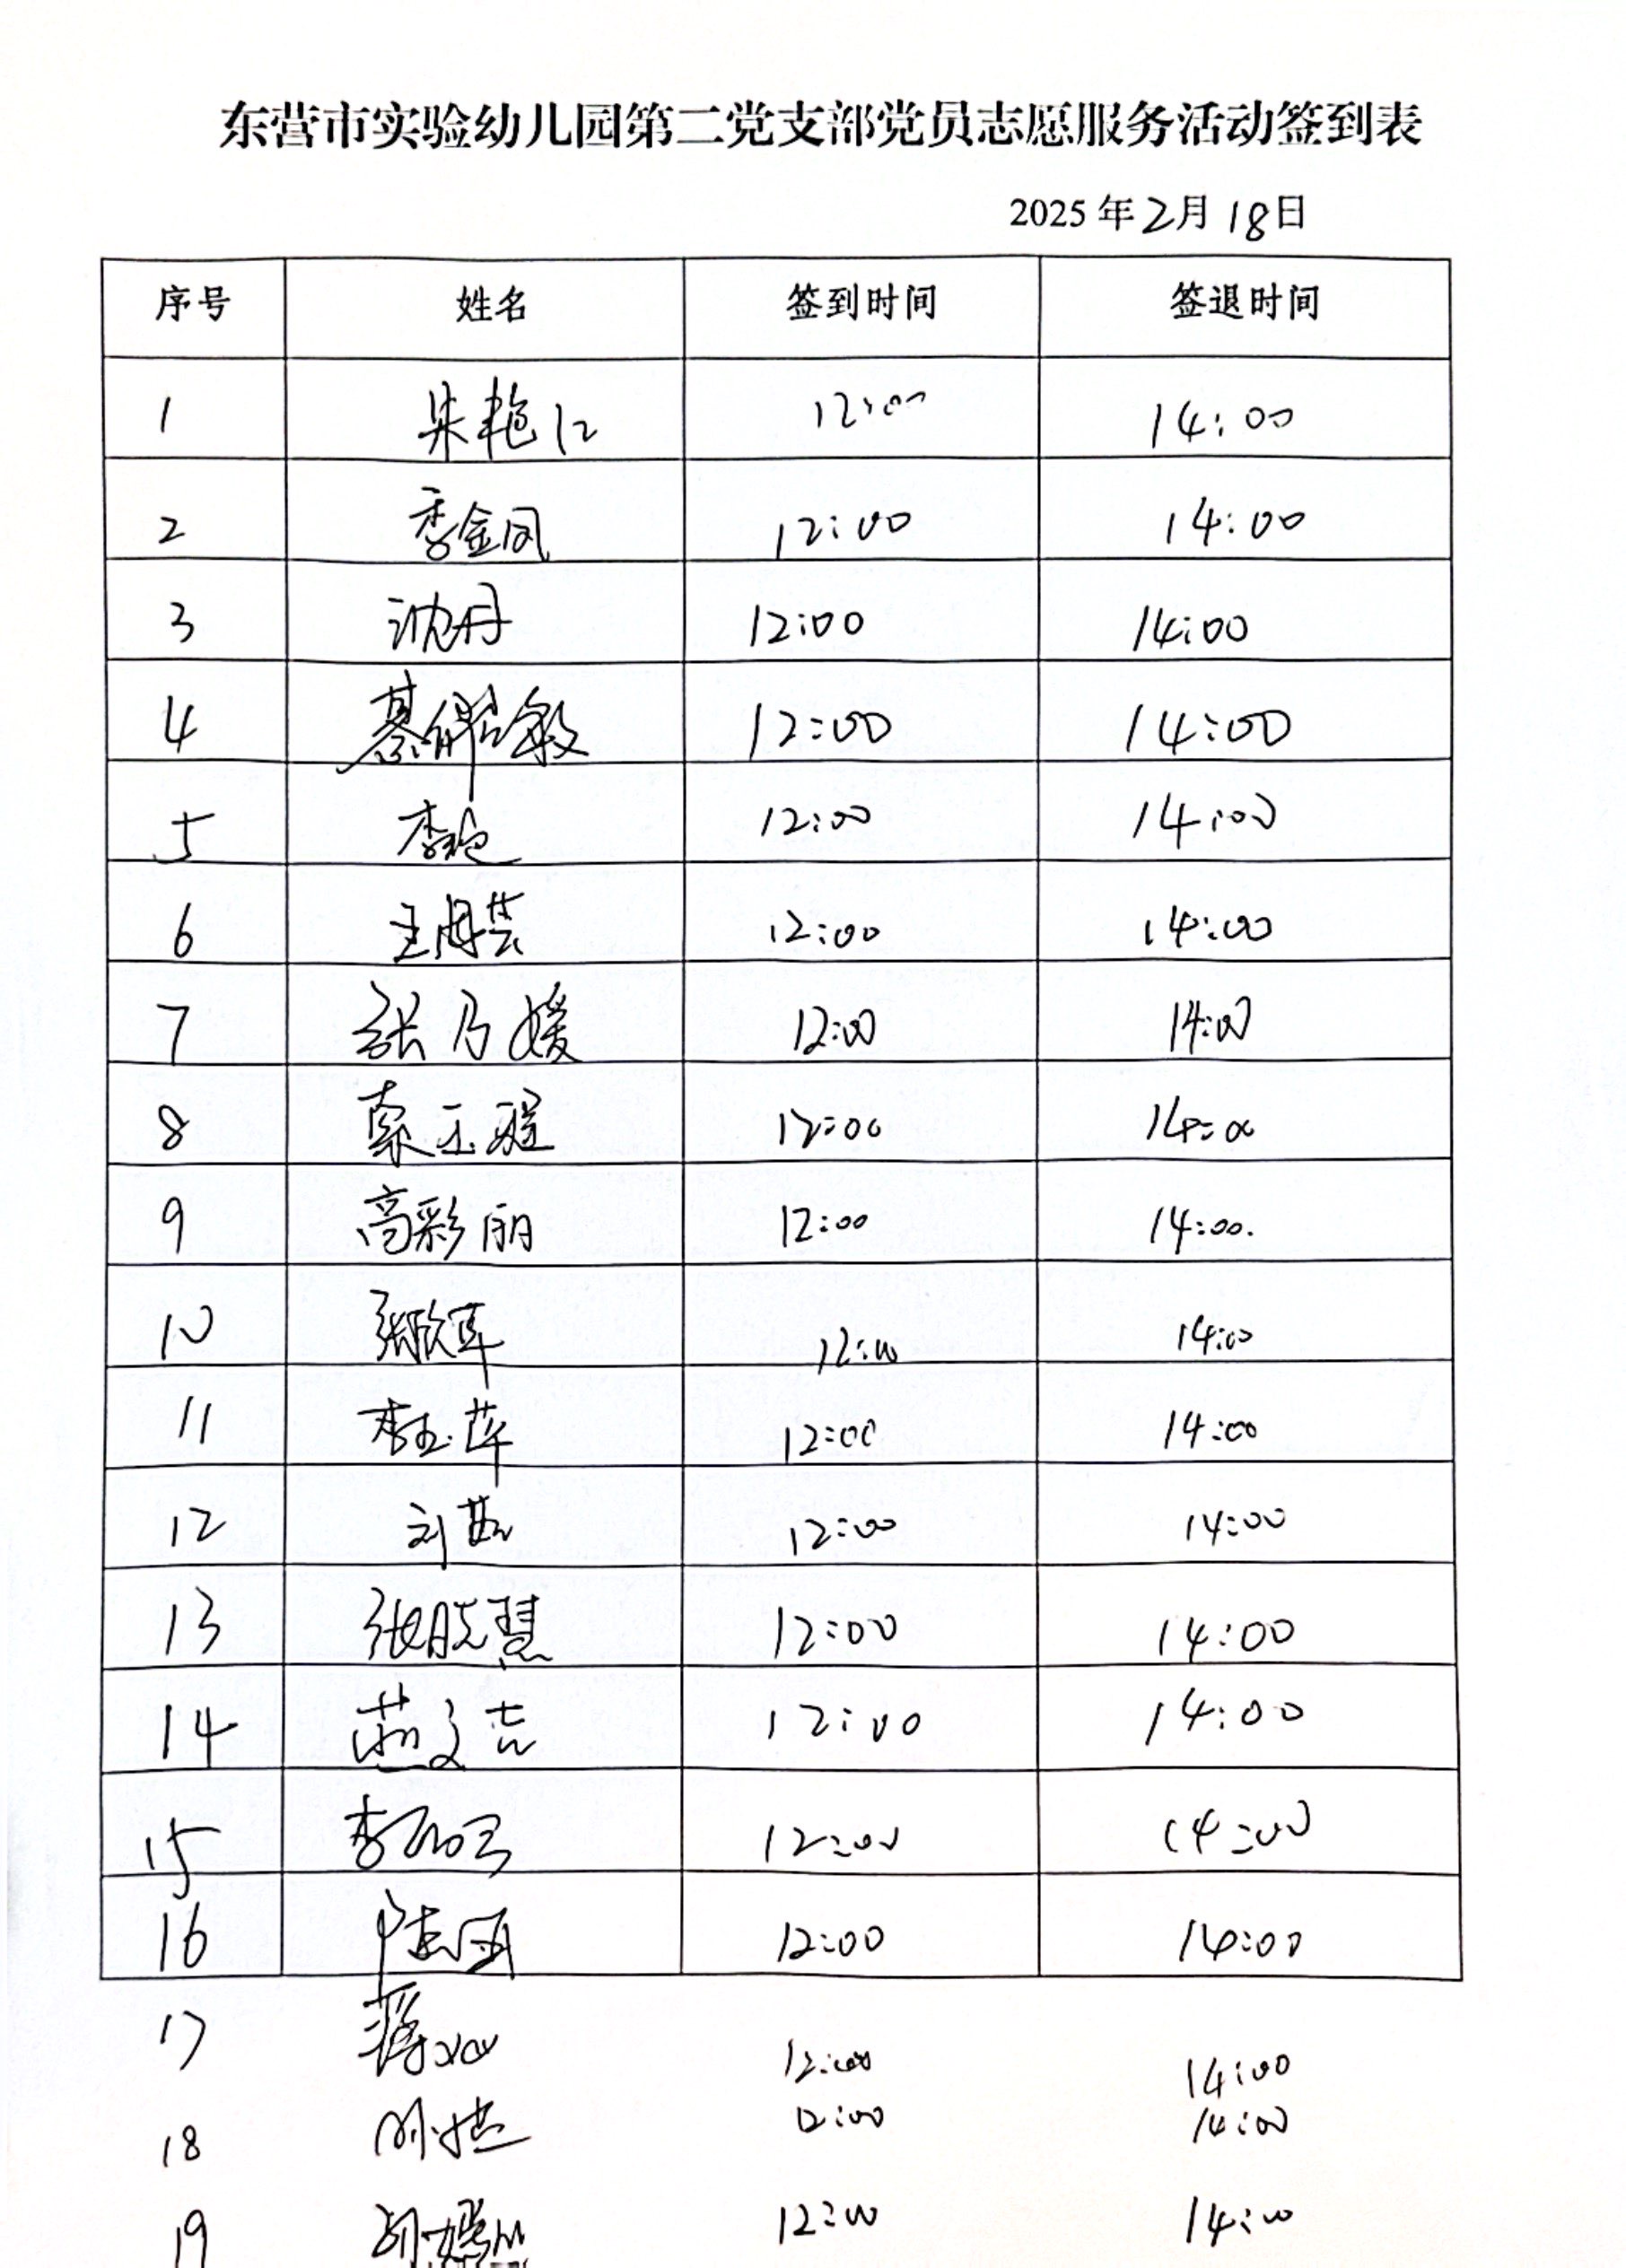 东营市实验幼儿园第二党支部党员志愿服务活动签到表
2025年2月18日
序号 姓名 签到时间 签退时间
1 朱艳红 12:00 14:00
2 季金凤 12:00 14:00
3 沈丹 12:00 14:00
4 綦 敏 12:00 14:00
5 李艳 12:00 14:00
6 王海芸 12:00 14:00
7 张乃媛 12:00 14:00
8 12:00 14:00
9 高彩丽 12:00 14:00
10 张欣苹 12:00 14:00
11 李玉萍 12:00 14:00
12 刘 12:00 14:00
13 张晓慧 12:00 14:00
14 燕文吉 12:00 14:00
15 李 12:00 14:00
16 12:00 14:00
17 蒋 12:00 14:00
18 12:00 14:00
19 12:00 14:00